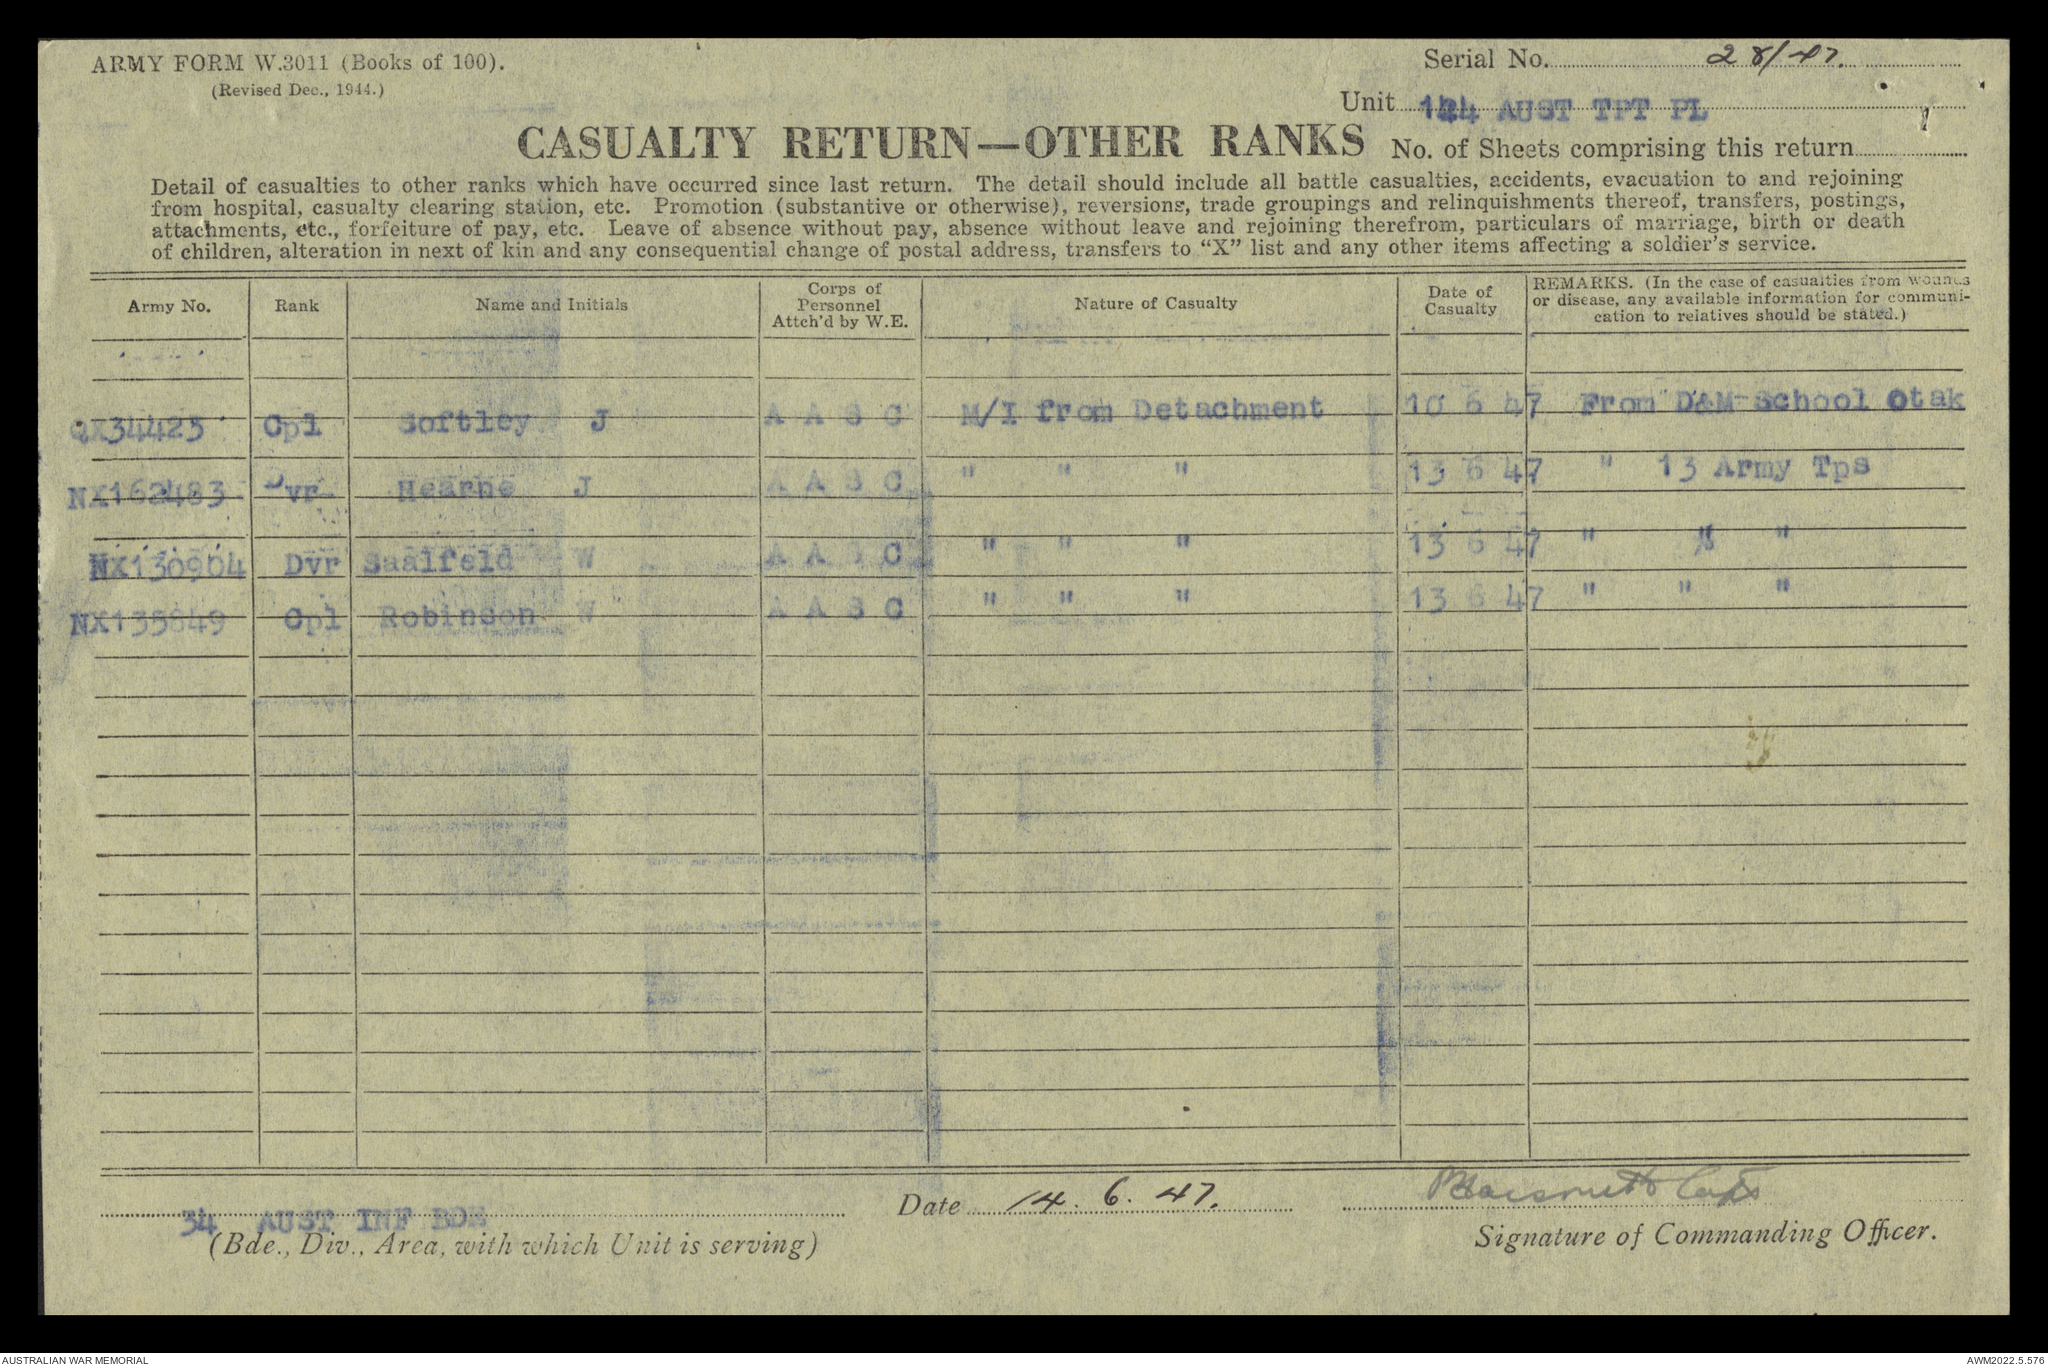 ARMY FORM W.3011 (Books of 100).
(Revised Dec., 1944.)
Serial No. 28/47.
Unit 124 AUST TPT PL
CASUALTY RETURN—OTHER RANKS
No. of Sheets comprising this return
Detail of casualties to other ranks which have occurred since last return. The detail should include all battle casualties, accidents, evacuation to and rejoining
from hospital, casualty clearing station, etc. Promotion (substantive or otherwise), reversions, trade groupings and relinquishments thereof, transfers, postings,
attachments, etc., forfeiture of pay, etc. Leave of absence without pay, absence without leave and rejoining therefrom, particulars of marriage, birth or death
of children, alteration in next of kin and any consequential change of postal address, transfers to “X” list and any other items affecting a soldier’s service.
Army No.
Rank
Name and Initials
Corps of
Personnel
Attch’d by W.E.
Nature of Casualty
Date of
Casualty
REMARKS. (In the case of casualties from wounds
or disease, any available information for communi-
cation to relatives should be stated.)
QX34423 Cpl Softley J A A S C M/I from Detachment 10 6 47 From D&M School Otak
NX162483 Dvr Hearne J A A S C " " " 13 6 47 " 13 Army Tps
NX130904 Dvr Saalfeld W A A S C " " " 13 6 47 " " "
NX135849 Cpl Robinson W A A S C " " " 13 6 47 " " "
34 AUST INF BDE
(Bde., Div., Area, with which Unit is serving)
Date 14. 6. 47.
Capt
Signature of Commanding Officer.
AUSTRALIAN WAR MEMORIAL
AWM2022.5.576